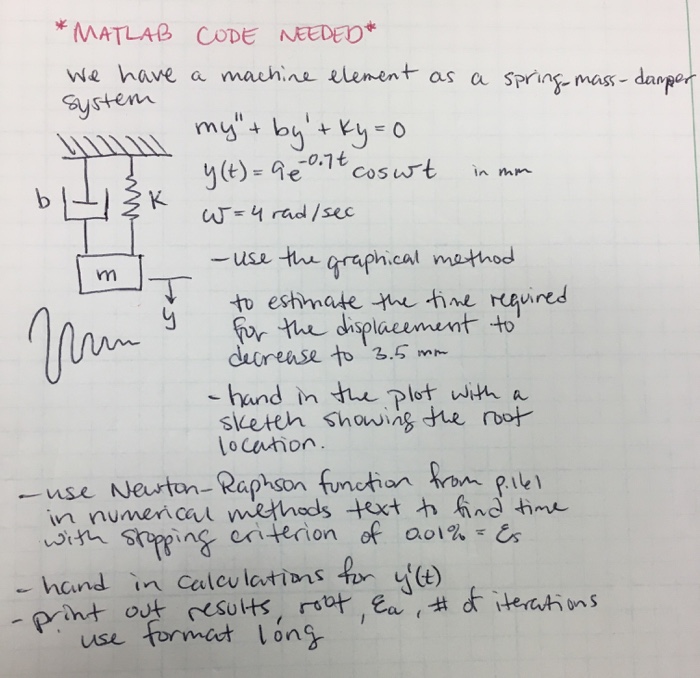 *MATLAB CODE NEEDED*
We have a machine element as a spring-mass-damper
system
my" + by' + Ky = 0
y(t) = 9e^-0.7t cos wt in mm
ω = 4 rad/sec
b
K
m
y
- use the graphical method
to estimate the time required
for the displacement to
decrease to 3.5 mm
- hand in the plot with a
sketch showing the root
location.
- use Newton-Raphson function from p.161
in numerical methods text to find time
with stopping criterion of 0.01% = Es
- hand in calculations for y'(t)
- print out results, root, Ea, # of iterations
use format long